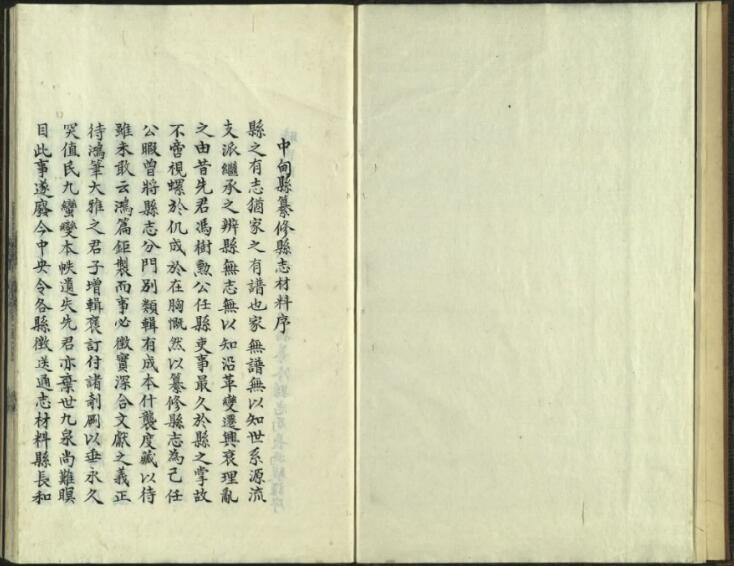 中甸縣纂修縣志材料序
縣之有志猶家之有譜也家無譜無以知世系源流
支派繼承之辨縣無志無以知沿革變遷興衰理亂
之由昔先君馮樹勲公任縣吏事最久於縣之掌故
不啻視螺於仉成於在胸慨然以纂修縣志為己任
公暇曾將縣志分門別類輯有成本什襲度藏以待
雖未敢云鴻篇鉅製而事必徵實深合文獻之義正
待鴻筆大雅之君子增輯裒訂付諸剞劂以垂永久
突值氏九蠻變本帙遺失先君亦棄世九泉尚難瞑
目此事遂廢今中央令各縣徵送通志材料縣長和